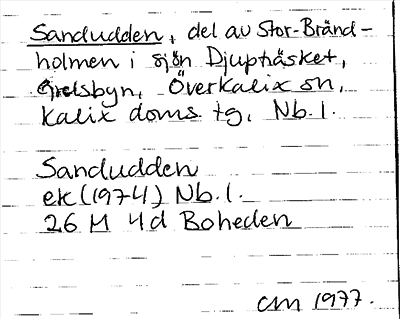 Sandudden, del av Stor-Bränd-
holmen i sjön Djupträsket,
Grelsbyn, Överkalix sn,
Kalix doms. tg, Nb. l.
Sandudden
ek (1974) Nb. l.
26 M 4d Boheden
CM 1977.